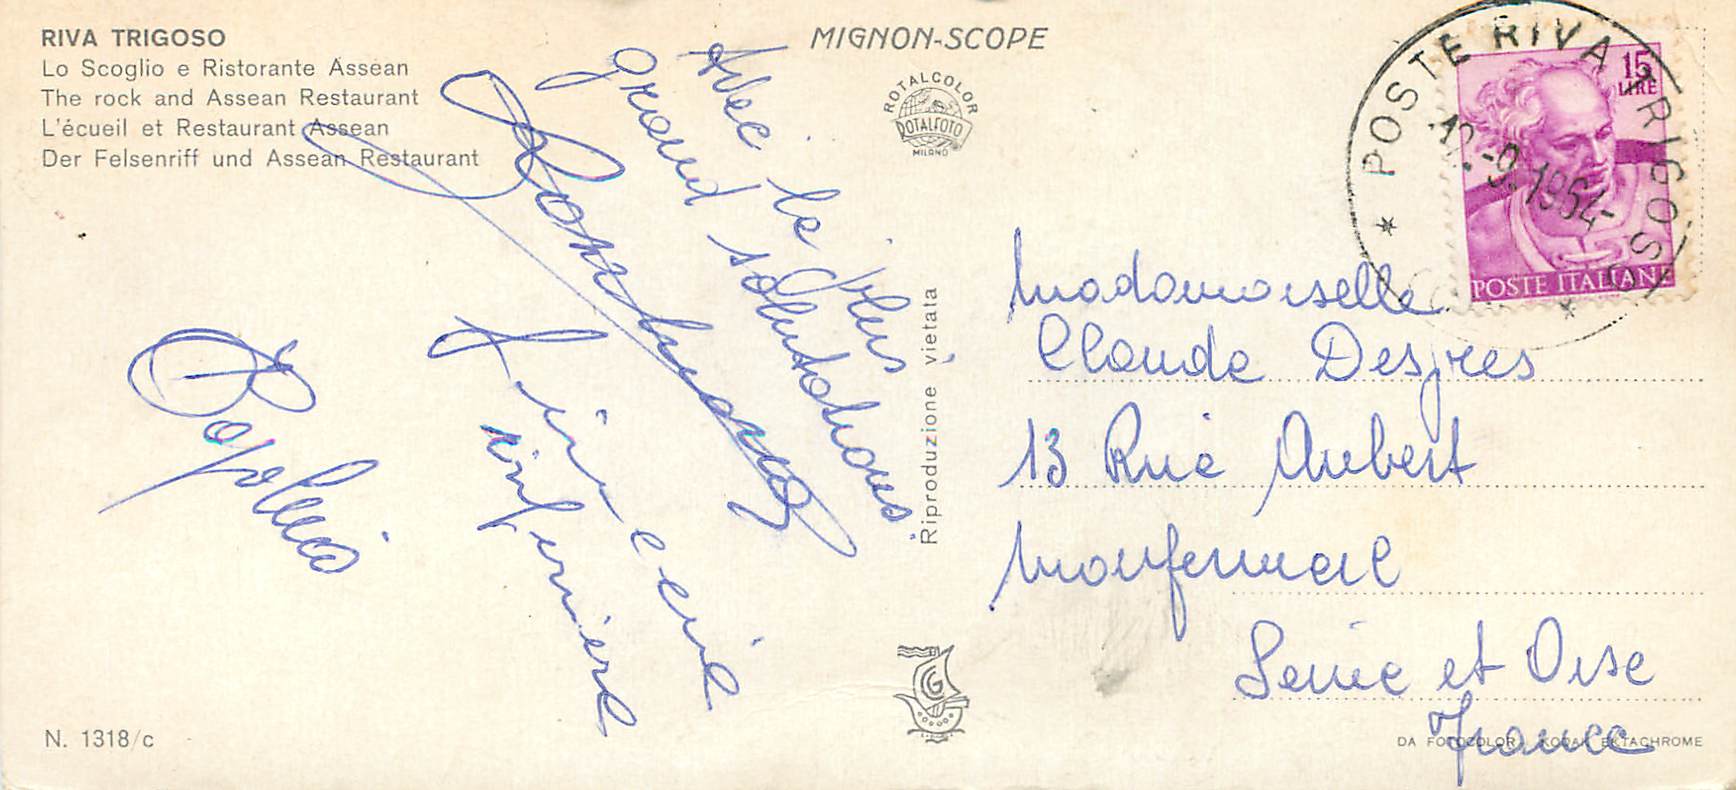 RIVA TRIGOSO
Lo Scoglio e Ristorante Assean
The rock and Assean Restaurant
L'écueil et Restaurant Assean
Der Felsenriff und Assean Restaurant
MIGNON-SCOPE
ROTALCOLOR
ROTALFOTO
MILANO
Avec le plus
grand salutations
infermiere
Riproduzione vietata
15
LIRE
POSTE ITALIANE
POSTE RIVA TRIGOSO
12.-9.1964-
Mademoiselle
Claude Desgres
13 Rue Aubert
Monfermeil
Seine et Oise
France
G
N. 1318/c
DA FOTOCOLOR KODAK EKTACHROME